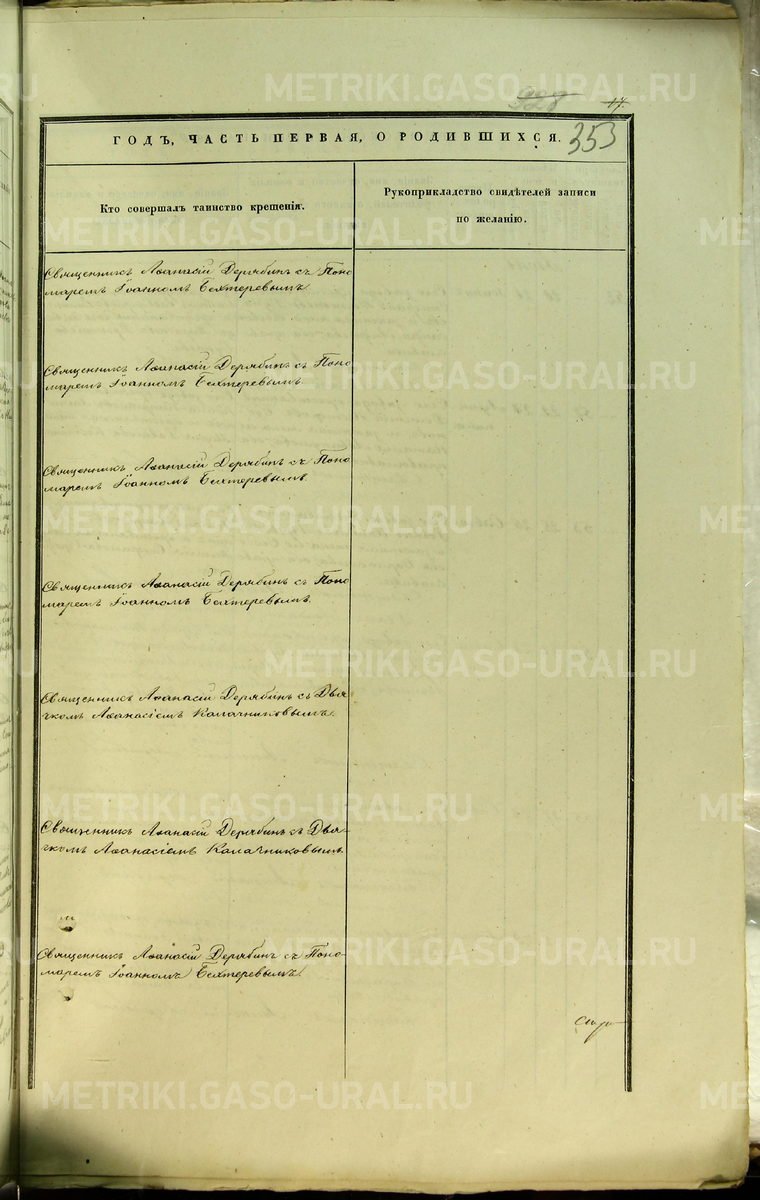 928
17.
353
ГОДЪ, ЧАСТЬ ПЕРВАЯ, О РОДИВШИХСЯ.
Кто совершалъ таинство крещенія.
Рукоприкладство свидѣтелей записи
по желанію.
Священникъ Аѳанасій Дерябинъ съ Поно
маремъ Іоанномъ Бехтеревымъ.
Священникъ Аѳанасій Дерябинъ съ Поно
маремъ Іоанномъ Бехтеревымъ.
Священникъ Аѳанасій Дерябинъ съ Поно
маремъ Іоанномъ Бехтеревымъ.
Священникъ Аѳанасій Дерябинъ съ Поно
маремъ Іоанномъ Бехтеревымъ.
Священникъ Аѳанасій Дерябинъ съ Дья
чкомъ Аѳанасіемъ Калачниковымъ.
Священникъ Аѳанасій Дерябинъ съ Дья-
чкомъ Аѳанасіемъ Калачниковымъ.
Священникъ Аѳанасій Дерябинъ съ Поно-
маремъ Іоанномъ Бехтеревымъ.
METRIKI.GASO-URAL.RU